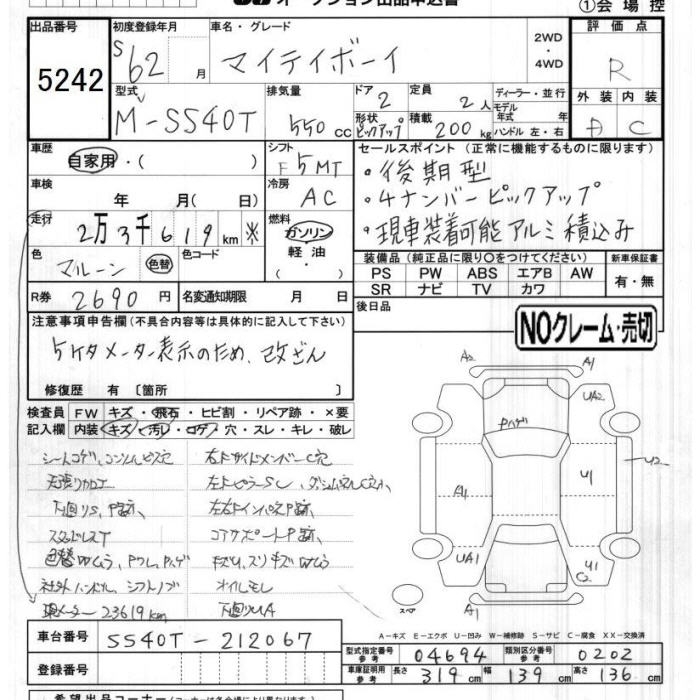 オークション出品申込書
①会場控
出品番号
5242
初度登録年月
S62月
車名・グレード
マイティボーイ
2WD
・
4WD
評価点
R
型式
M-SS40T
排気量
550cc
ドア
2
形状
ピックアップ
定員
2人
積載
200kg
ディーラー・並行
モデル
年式 年
ハンドル 左・右
外装 内装
D C
車歴
自家用・( )
シフト
F5MT
セールスポイント (正常に機能するものに限ります)
・後期型
・4ナンバーピックアップ
・現車装着可能アルミ積込み
車検
年 月( 日)
冷房
AC
走行
2万3千619km ※
燃料
ガソリン
軽油
・( )
色
マルーン
色替
色コード
R券 2690円
名変通知期限 月 日
装備品 (純正品に限り○をつけてください)
PS PW ABS エアB AW
SR ナビ TV カワ
新車保証書
有・無
後日品
NOクレーム・売切
注意事項申告欄 (不具合内容等は具体的に記入して下さい)
5ケタメーター表示のため、改ざん
修復歴 有 〔箇所 〕
検査員 FW キズ・飛石・ヒビ割・リペア跡・×要
記入欄 内装 キズ・汚レ・コゲ・穴・スレ・キレ・破レ
シートコゲ、コンソルビス穴
天張りカロエ
下廻りS、P跡、
スタッドレスT
色替Wムラ、Pウレ、Pハゲ
社外ハンドル、シフトノブ
現メーター 23619km
右Fサイドメンバー C穴
コアサポートP跡
オイルモレ
下廻りUA
A2
A1
UA2
Pハゲ
U2
A1
U1
UA1
U1
C2
A1
スペア
A-キズ E-エクボ U-凹み W-補修跡 S-サビ C-腐食 XX-交換済
車台番号
SS40T-212067
登録番号
型式指定番号
参考
04694
類別区分番号
参考
0202
車庫証明用
参考
長さ 319cm 幅 139cm 高さ 136cm
希望出品コーナー